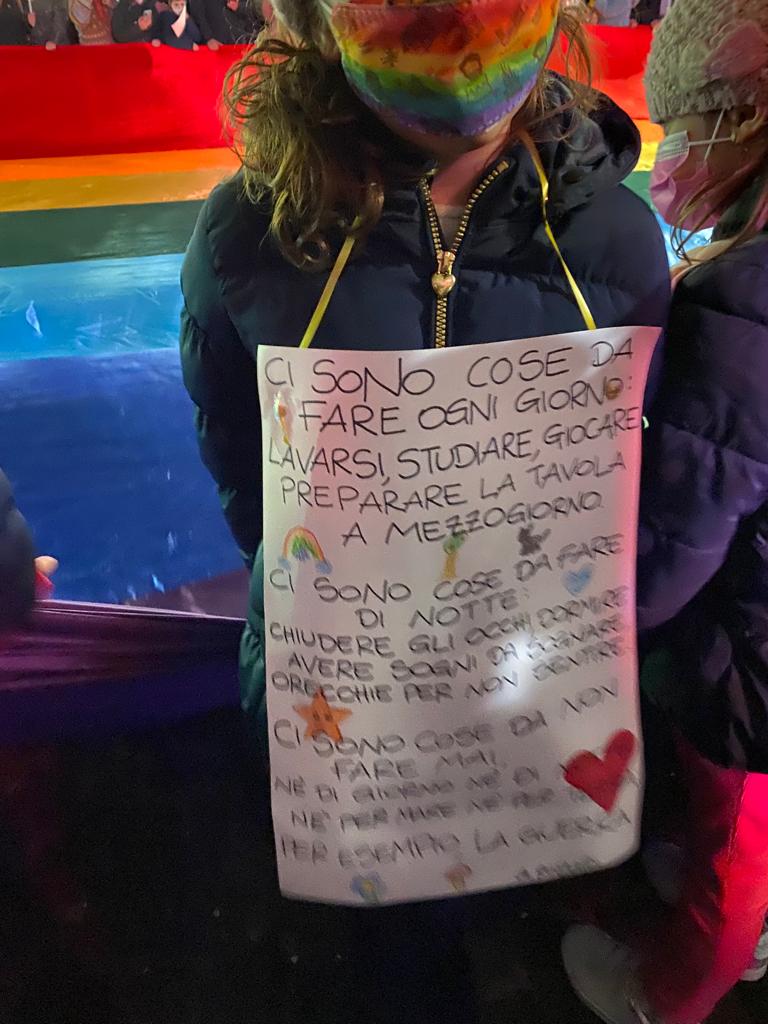 CI SONO COSE DA
FARE OGNI GIORNO:
LAVARSI, STUDIARE, GIOCARE
PREPARARE LA TAVOLA
A MEZZOGIORNO.
CI SONO COSE DA FARE
DI NOTTE:
CHIUDERE GLI OCCHI, DORMIRE
AVERE SOGNI DA SOGNARE
ORECCHIE PER NON SENTIRE.
CI SONO COSE DA NON
FARE MAI,
NÈ DI GIORNO NÈ DI
NÈ PER MARE NÈ PER
PER ESEMPIO LA GUERRA